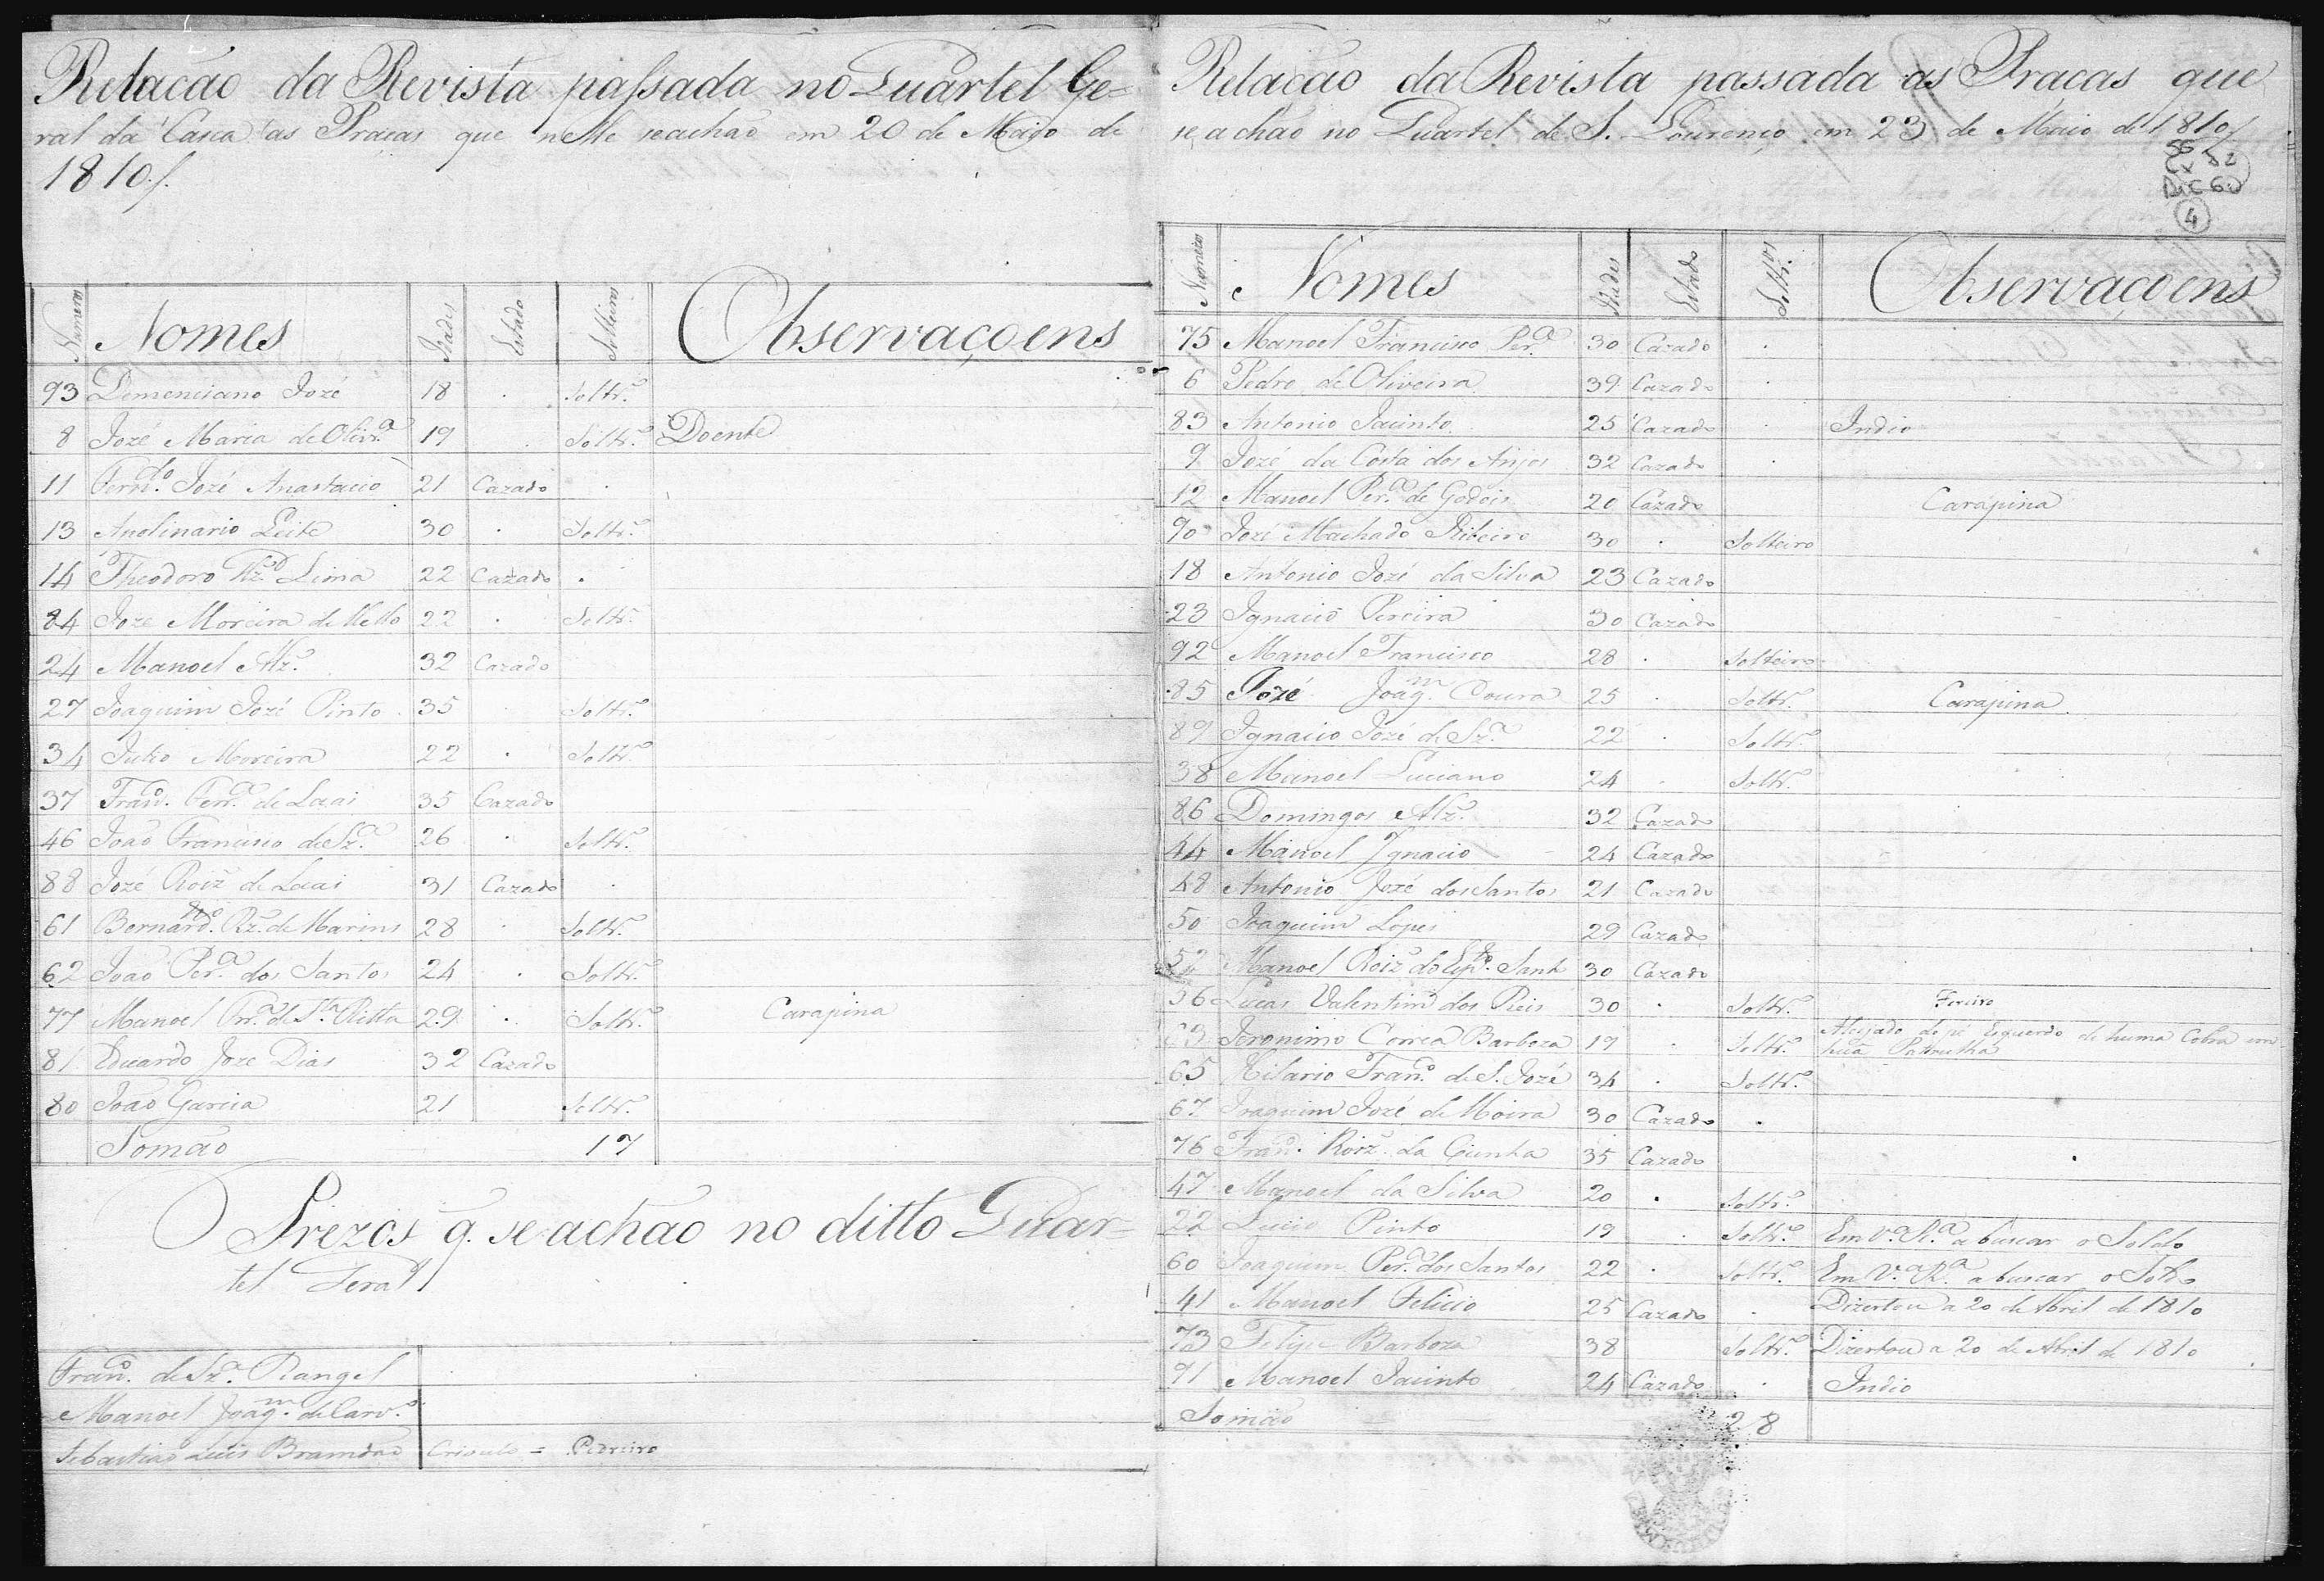 Relacão da Revista passada no Quartel Ge=
ral da Casca as Praças que nelle seachão em 20 de Maýo de
1810 /.
Numeros Nomes Idades Estado Solteiros Observaçoens
93 Demenciano Jozé 18 . Soltr.º
8 Jozé Maria de Olivr.ª 19 . Soltr.º Doente
11 Fern.do Jozé Anastacio 21 Cazado .
13 Apolinario Leite 30 . Soltr.º
14 Theodoro Lima 22 Cazado .
84 Joze Moreira de Mello 22 . Soltr.º
24 Manoel Alz.' 32 Cazado
27 Joaquim Jozé Pinto 35 . Soltr.º
34 Julio Moreira 22 . Soltr.º
37 Fran.co Ferr.ª de Laai 35 Cazado
46 João Francisco de Sz.ª 26 . Soltr.º
88 Jozé Roiz' de Laai 31 Cazado .
61 Bernard.º Rz.' de Marins 28 . Soltr.º
62 João Per.ª dos Santos 24 . Soltr.º
77 Manoel de S.ta Ritta 29 . Soltr.º Carapina
81 Eduardo Joze Dias 32 Cazado
80 João Garcia 21 Soltr.º
Somão 17
Prezos q. se achão no ditto Quar=
tel Geral
Fran.co de Sz.ª Rangel
Manoel Joaq.m de Carv.º
Sebastião Luis Bramdão Crioulo = Pedreiro
Relacão da Revista passada as Pracas que
se achão no Quartel de S. Lourenço em 23 de Maio de 1810 /.
SG
CX 82
Doc 60
4
Numeros Nomes Idades Estado Soltr.os Observaçoens
75 Manoel Francisco Per.ª 30 Cazado .
6 Pedro de Oliveira 39 Cazado .
83 Antonio Jacinto 25 Cazado . Indio
9 Jozé da Costa dos Anjos 32 Cazado .
12 Manoel Per.ª de Godois 20 Cazado Carapina
90 Jozé Machado Ribeiro 30 . Solteiro
18 Antonio Jozé da Silva 23 Cazado
23 Ignacio Pereira 30 Cazado
92 Manoel Francisco 28 . Solteiro
85 Jozé Joaq.m Coura 25 . Soltr.º Carapina
89 Ignacio Jozé de Sz.ª 22 . Soltr.º
38 Manoel Luciano 24 . Soltr.º
86 Domingos Alz.' 32 Cazado
44 Manoel Ignacio 24 Cazado
48 Antonio Jozé dos Santos 21 Cazado
50 Joaquim Lopes 29 Cazado
52 Manoel Roiz' do Esp.to Sant 30 Cazado
56 Lucas Valentim dos Reis 30 . Soltr.º Fereiro
63 Jeronimo Correa Barboza 19 . Soltr.º Aleijado do pé Esquerdo de huma Cobra em
huã Patrulha
65 Hilario Fran.co de S. Jozé 34 . Soltr.º
67 Joaquim Jozé de Moira 30 Cazado .
76 Fran.co Roiz' da Cunha 35 Cazado
47 Manoel da Silva 20 . Soltr.º
22 Lucio Pinto 19 . Soltr.º Em V.ª R.ª a buscar o Soldo
60 Joaquim Per.ª dos Santos 22 . Soltr.º Em V.ª R.ª a buscar o Soldo
41 Manoel Felicio 25 Cazado . Dizertou a 20 de Abril de 1810
73 Felipe Barboza 38 Soltr.º Dizertou a 20 de Abril de 1810
91 Manoel Jacinto 24 Cazado . Indio
Somão 28